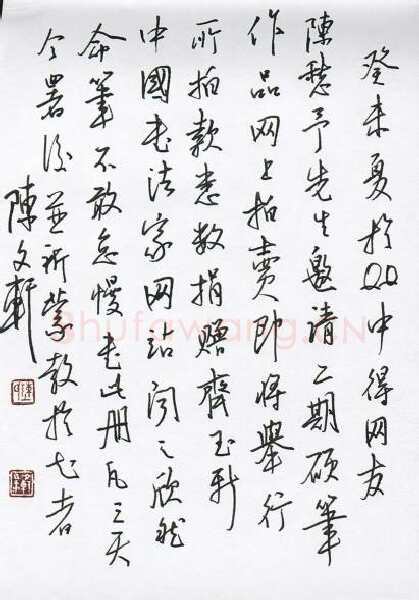 癸未夏於QQ中得网友
陳愁予先生邀请二期硕筆
作品网上拍賣即將舉行
所拍款悉数捐赠齊玉新
中國书法家网站闻之欣然
命筆不敢怠慢书此册凡三天
署後並祈教於者
陳文軒
Shufawang.CN